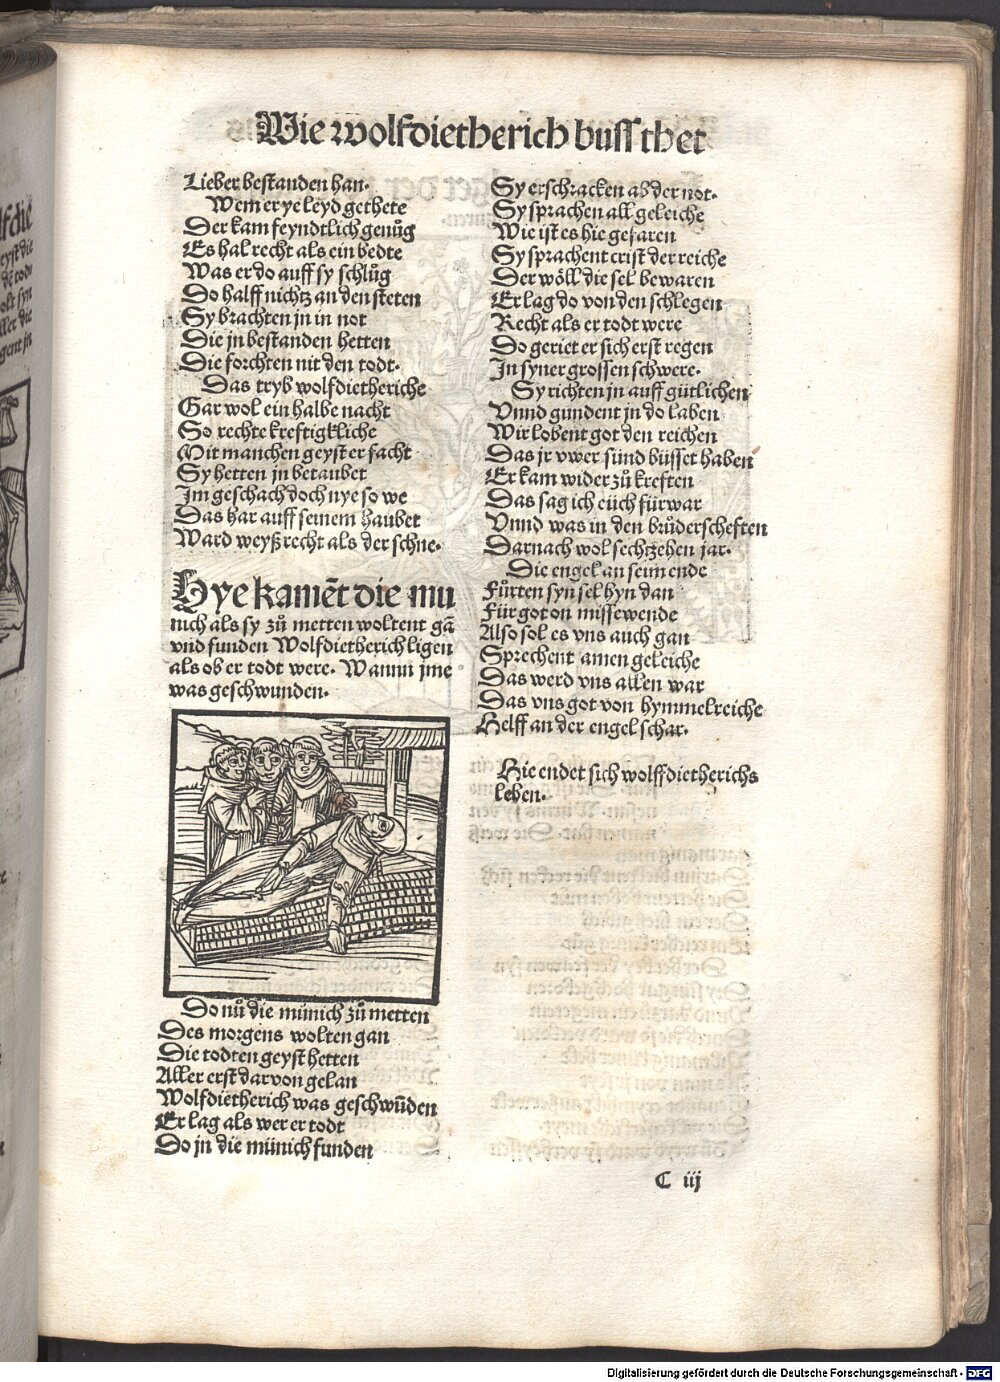 Wie wolfdietherich buss thet
Lieber bestanden han.
Wem er ye leyd gethete
Der kam feyndtlich genůg
Es hal recht als ein bedte
Was er do auff sy schlůg
Do halff nichtz an den steten
Sy brachten jn in not
Die jn bestanden hetten
Die forchten nit den todt.
Das tryb wolfdietheriche
Gar wol ein halbe nacht
So rechte kreftigkliche
Mit manchen geyst er facht
Sy hetten jn betaubet
Im geschach doch nye so we
Das har auff seinem haubet
Ward weyß recht als der schne.
Hye kamēt die mu
nich als sy zů metten woltent gā
vnd funden Wolfdietherich ligen
als ob er todt were. Wann jme
was geschwunden.
Do nů die münich zů metten
Des morgens wolten gan
Die todten geyst hetten
Aller erst darvon gelan
Wolfdietherich was geschwūden
Er lag als wer er todt
Do jn die münich funden
Sy erschracken ab der not.
Sy sprachen all geleiche
Wie ist es hie gefaren
Sy sprachent crist der reiche
Der wöll die sel bewaren
Er lag do von den schlegen
Recht als er todt were
Do geriet er sich erst regen
In syner grossen schwere.
Sy richten jn auff gütlichen
Vnnd gundent jn do laben
Wir lobent got den reichen
Das jr vwer sünd büsset haben
Er kam wider zů kreften
Das sag ich eüch fürwar
Vnnd was in den brůderscheften
Darnach wol sechtzehen jar.
Die engel an seim ende
Fůrten syn sel hyn dan
Für got on missewende
Also sol es vns auch gan
Sprechent amen geleiche
Das werd vns allen war
Das vns got von hymmelreiche
Helff an der engel schar.
Hie endet sich wolffdietherichs
leben.
C iij
Digitalisierung gefördert durch die Deutsche Forschungsgemeinschaft - DFG